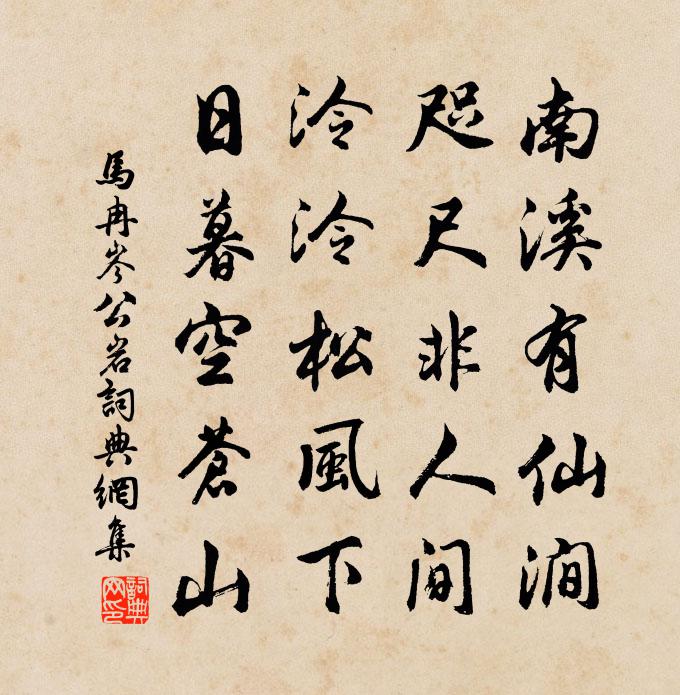 南溪有仙澗
咫尺非人间
泠泠松風下
日暮空蒼山
馬冉岑公岩詞典網集
詞典网印